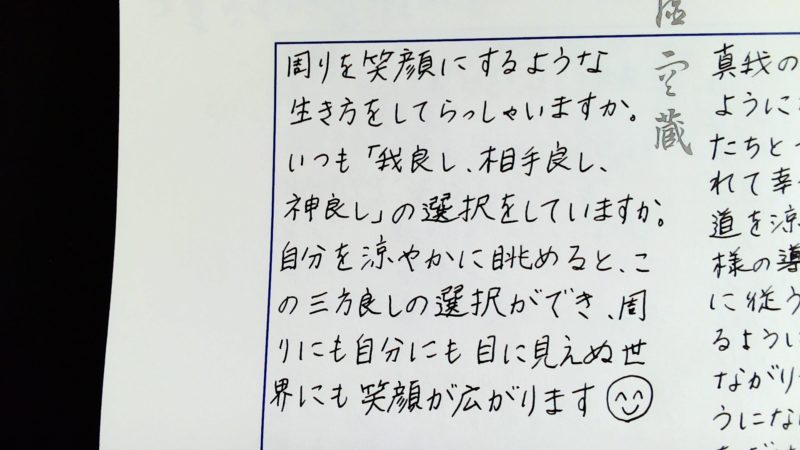 周りを笑顔にするような
生き方をしてらっしゃいますか。
いつも「我良し、相手良し、
神良し」の選択をしていますか。
自分を涼やかに眺めると、こ
の三方良しの選択ができ、周
りにも自分にも目に見えぬ世
界にも笑顔が広がります
蔵
真我の
ように
たちと
れて幸
道を涼
様の導
に従う
るように
ながり
うにな